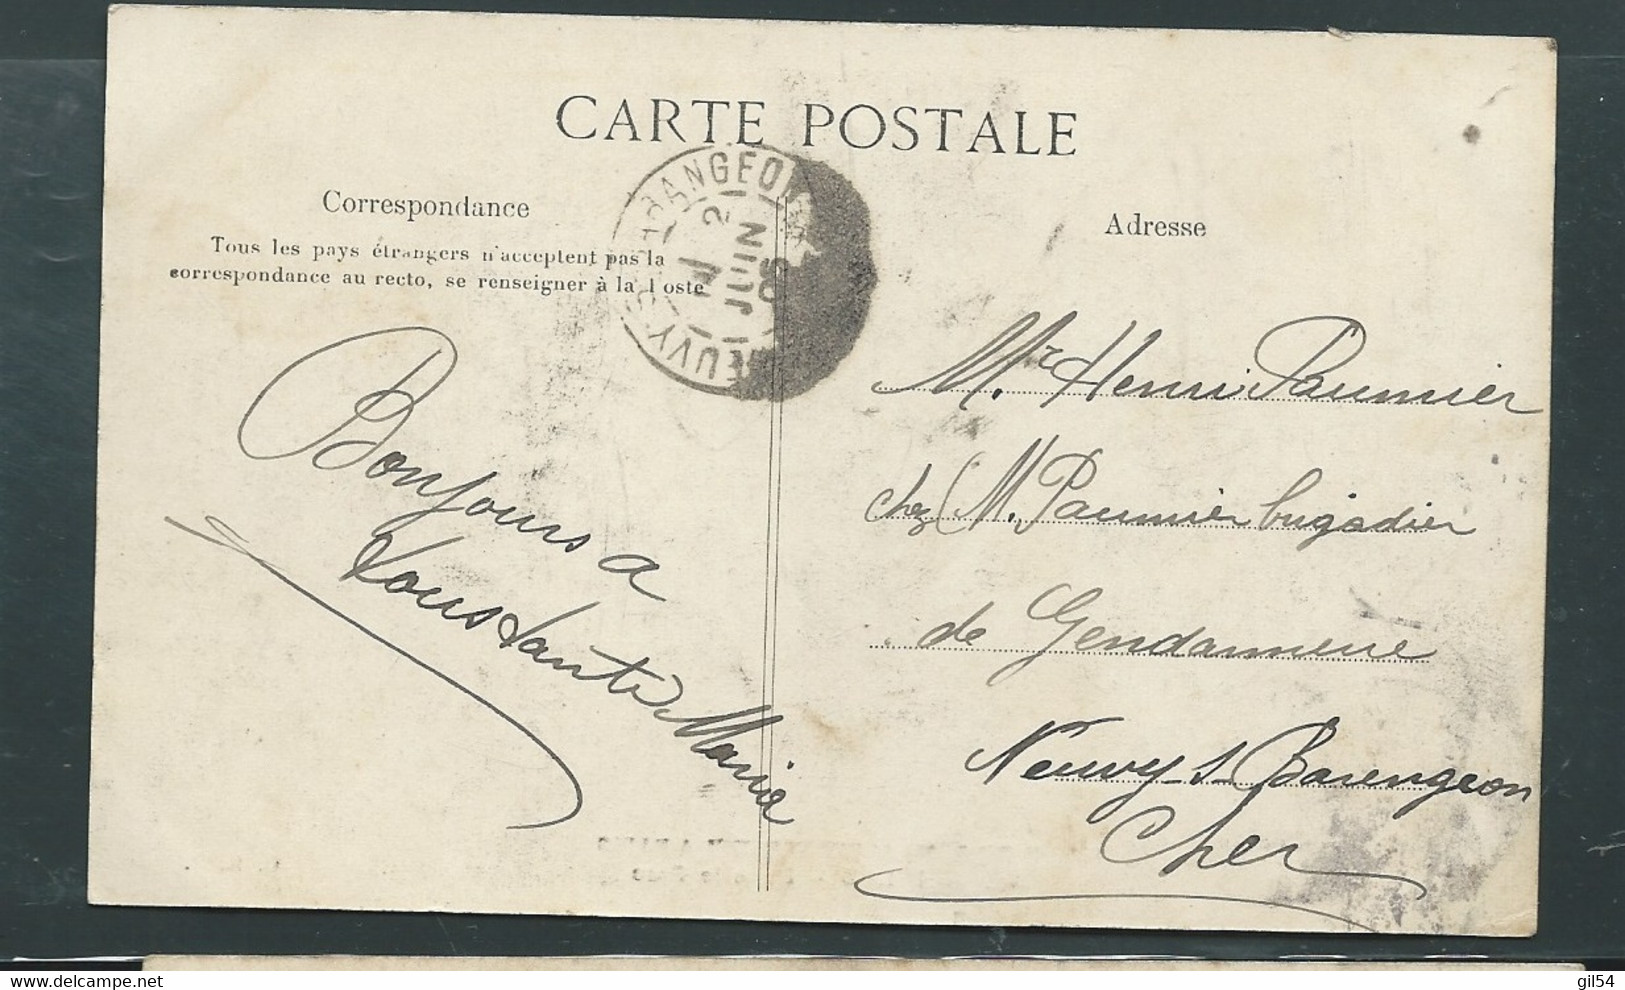 CARTE POSTALE
Correspondance
Tous les pays étrangers n'acceptent pas la
correspondance au recto, se renseigner à la Poste
Adresse
BARANGEON
2
JUIN
05
NEUVY-S
Bonjours a
tous Sante
Marie
Mr. Henri Paumier
chez M. Paumier brigadier
de Gendarmerie
Neuvy-s-Barengeon
Cher
gil54